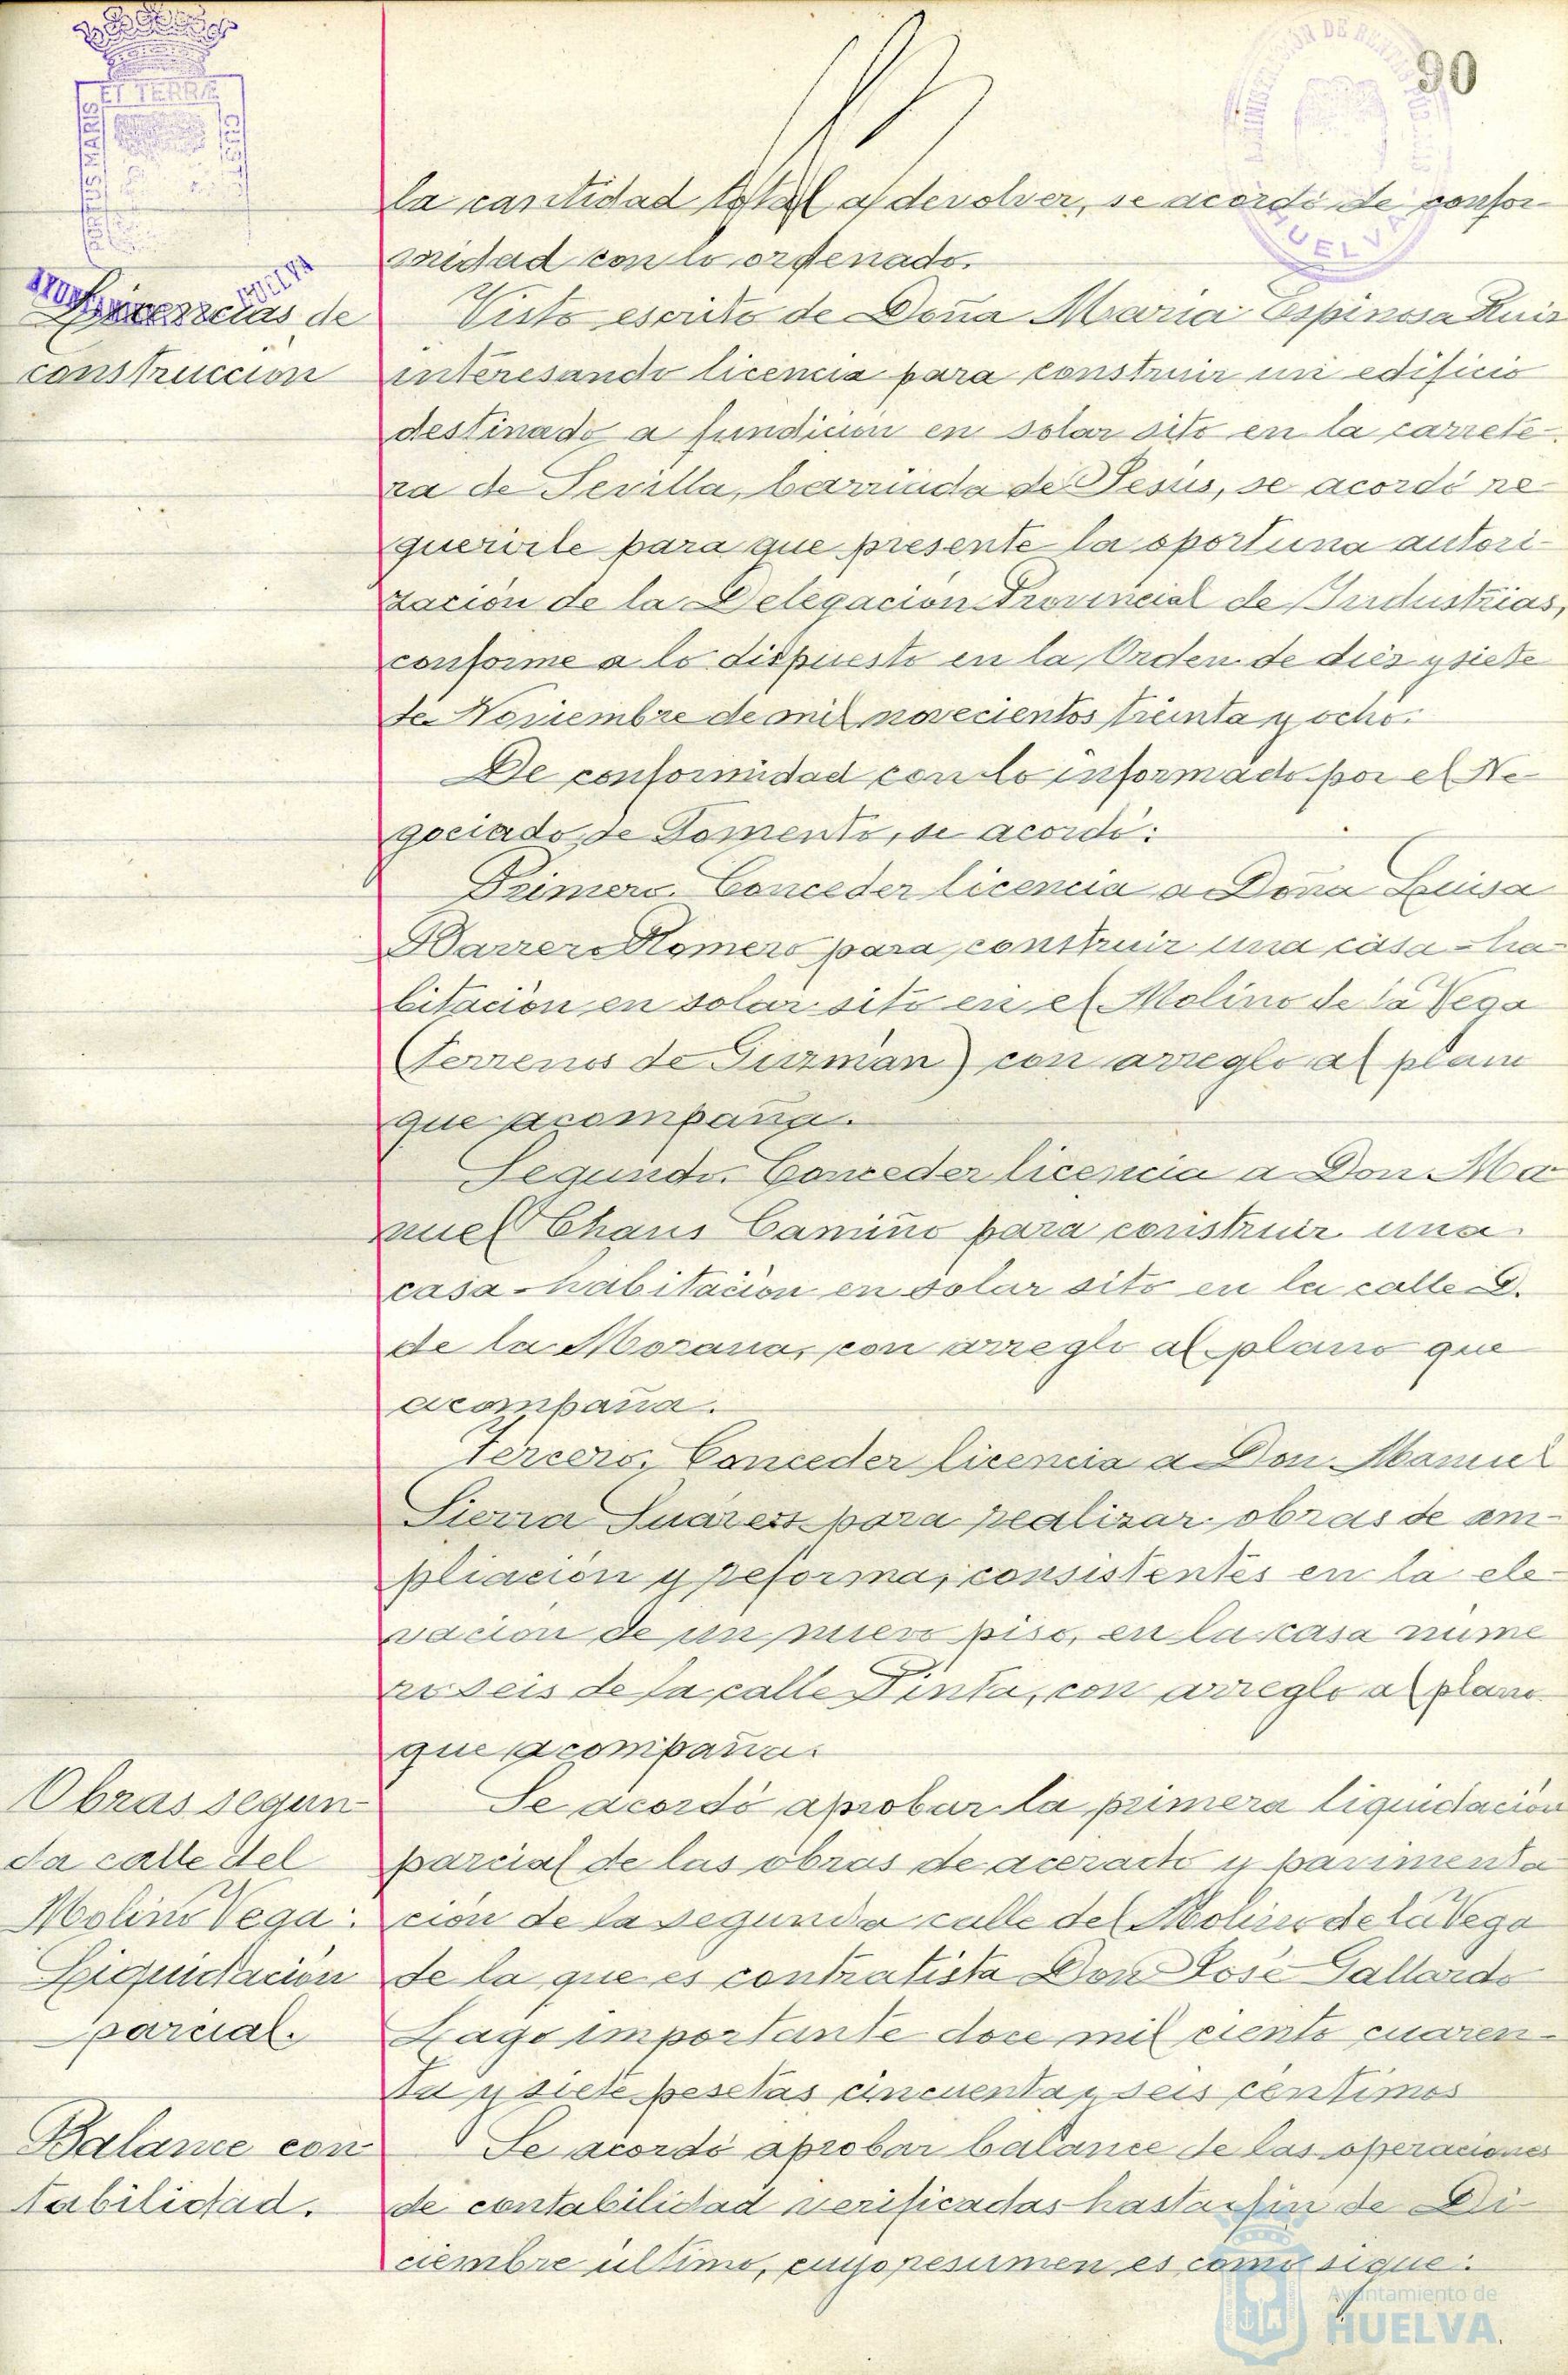 90
la cantidad total a devolver, se acordó de confor
midad con lo ordenado.
Licencias de
construccion
Visto escrito de Doña Maria Espinosa Ruiz
interesando licencia para construir un edificio
destinado a fundicion en solar sito en la carrete-
ra de Sevilla, barriada de Jesús, se acordó re-
querirle para que presente la oportuna autori-
zación de la Delegación Provincial de Industrias,
conforme a lo dispuesto en la Orden de diez y siete
de Noviembre de mil novecientos treinta y ocho.
De conformidad con lo informado por el Ne-
gociado de Fomento, se acordó:
Primero. Conceder licencia a Doña Luisa
Barrero Romero para construir una casa-ha-
bitación en solar sito en el Molino de la Vega
(Terrenos de Guzmán) con arreglo al plano
que acompaña.
Segundo. Conceder licencia a Don Ma
nuel Chans Camiño para construir una
casa-habitación en solar sito en la calle
de la Morana, con arreglo al plano que
acompaña.
Tercero. Conceder licencia a Don Manuel
Sierra Suarez para realizar obras de am-
pliación y reforma, consistentes en la ele-
vación de un nuevo piso, en la casa núme
ro seis de la calle Pinta, con arreglo al plano
que acompaña.
Obras segun-
da calle del
Molino Vega:
Liquidación
parcial.
Se acordó aprobar la primera liquidación
parcial de las obras de acerado y pavimenta
ción de la segunda calle del Molino de la Vega
de la que es contratista Don José Gallardo
Lago importante doce mil ciento cuaren-
ta y siete pesetas cincuenta y seis céntimos
Balance con
tabilidad.
Se acordó aprobar balance de las operaciones
de contabilidad verificadas hasta fin de Di-
ciembre último, cuyo resumen es como sigue:
Ayuntamiento de
HUELVA